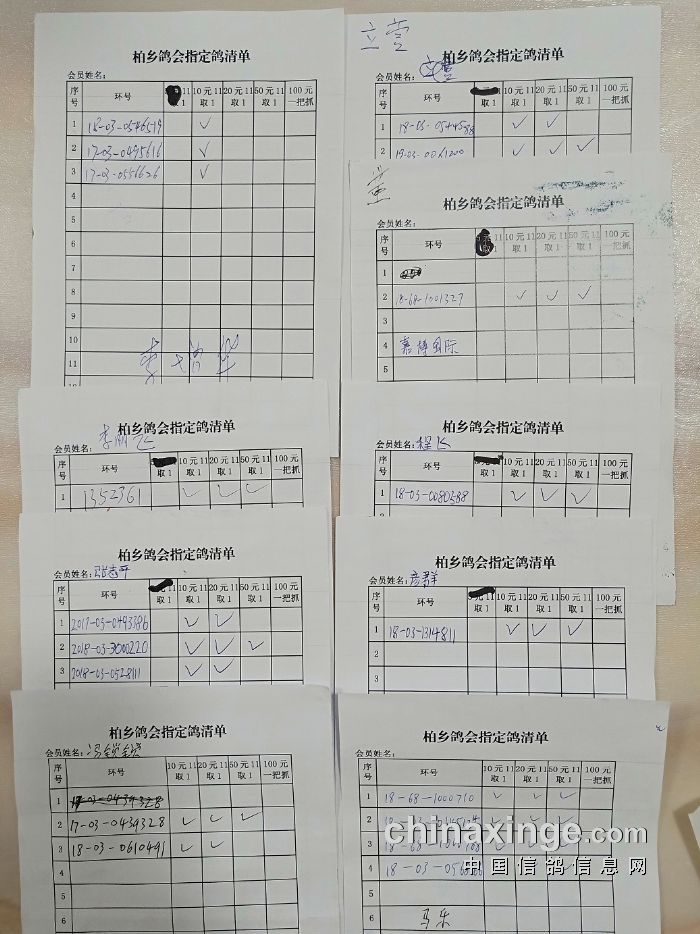 柏乡鸽会指定鸽清单
会员姓名:
序号 环号 11取1 10元11取1 20元11取1 50元11取1 100元一把抓
1 18-03-0546519 ✓
2 17-03-0495616 ✓
3 17-03-0556626 ✓
4
5
6
7
8
9
10
11
立营
柏乡鸽会指定鸽清单
会员姓名:
序号 环号 11取1 10元11取1 20元11取1 50元11取1 100元一把抓
1 ✓ ✓
2 19-03-0061200 ✓ ✓ ✓
柏乡鸽会指定鸽清单
会员姓名:
序号 环号 元11取1 10元11取1 20元11取1 50元11取1 100元一把抓
1
2 18-68-1001327 ✓ ✓ ✓
3
4 嘉博国际
5
柏乡鸽会指定鸽清单
会员姓名:
序号 环号 11取1 10元11取1 20元11取1 50元11取1 100元一把抓
1 1352361 ✓ ✓ ✓
柏乡鸽会指定鸽清单
会员姓名:程飞
序号 环号 11取1 10元11取1 20元11取1 50元11取1 100元一把抓
1 ✓ ✓ ✓
柏乡鸽会指定鸽清单
会员姓名:
序号 环号 11取1 10元11取1 20元11取1 50元11取1 100元一把抓
1 2017-03-0493386 ✓ ✓
2 2018-03-3000220 ✓ ✓ ✓
3 2018-03-0528111 ✓ ✓
柏乡鸽会指定鸽清单
会员姓名:彦群
序号 环号 元11取1 10元11取1 20元11取1 50元11取1 100元一把抓
1 18-03-1314811 ✓ ✓ ✓
2
3
柏乡鸽会指定鸽清单
会员姓名:冯锁锁
序号 环号 10元11取1 20元11取1 50元11取1 100元一把抓
1
2 17-03-0439328 ✓ ✓ ✓
3 18-03-0610491 ✓ ✓
4
5
6
柏乡鸽会指定鸽清单
会员姓名:
序号 环号 10元11取1 20元11取1 50元11取1 100元一把抓
1 18-68-1000710 ✓ ✓ ✓
2
3
4
5
6 马乐
chinaxinge.com
中国信鸽信息网